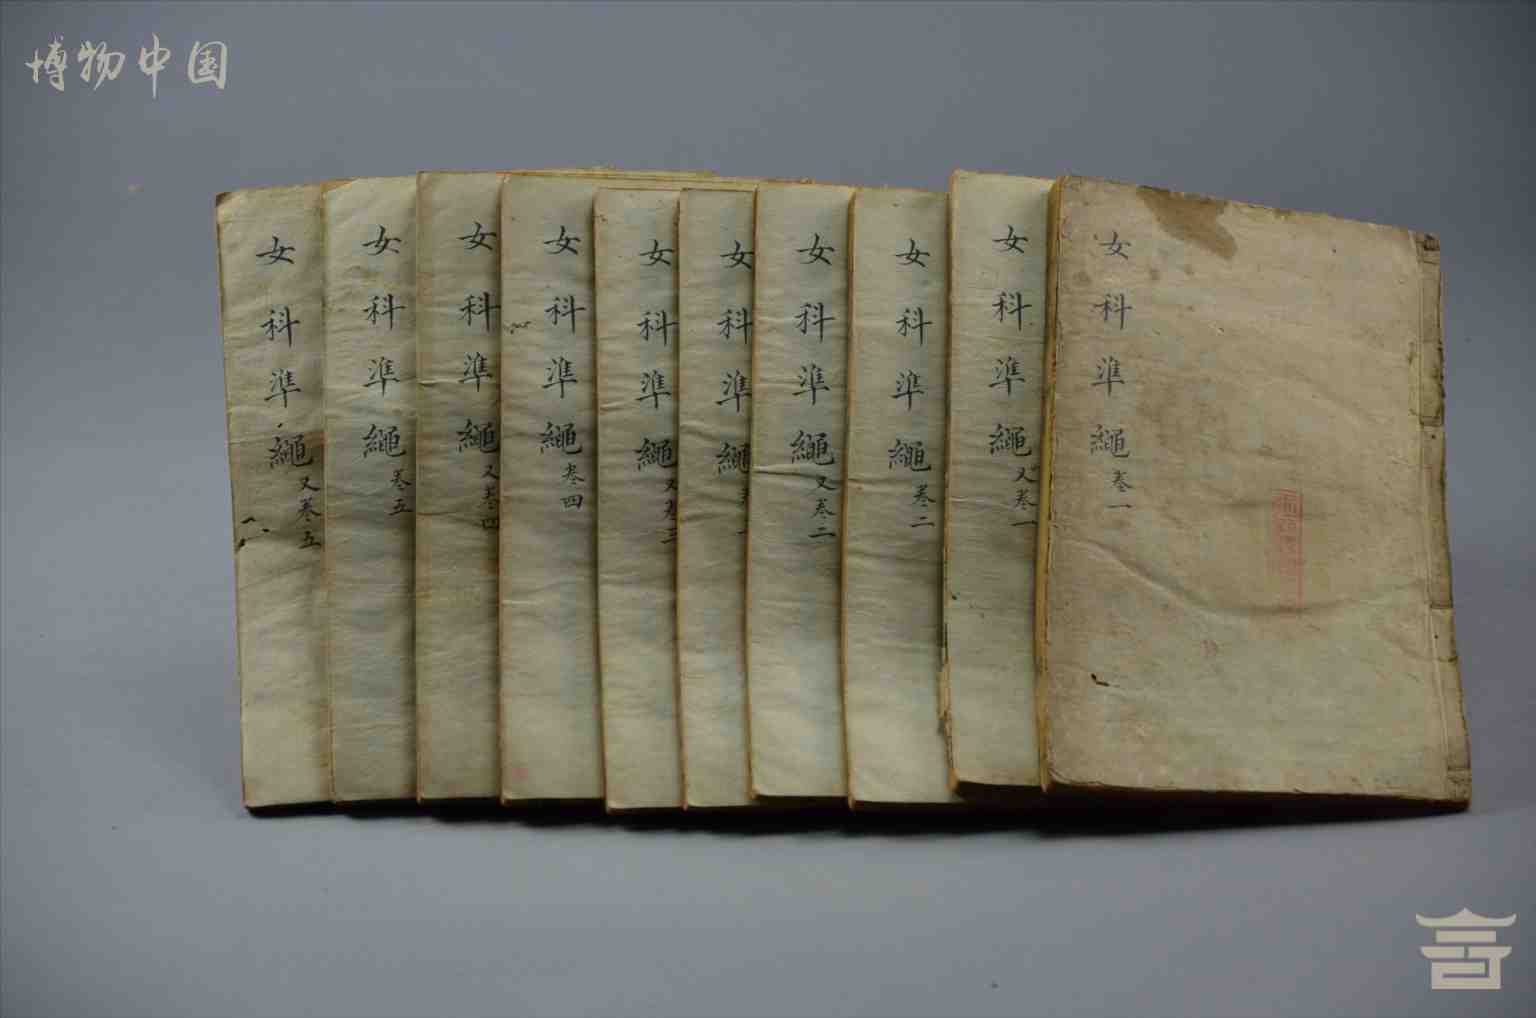 博物中国
女科準繩 卷一
女科準繩 又卷一
女科準繩 卷二
女科準繩 又卷二
女科準繩 卷
女科準繩 又卷三
女科準繩 卷四
女科準繩 又卷四
女科準繩 卷五
女科準繩 又卷五